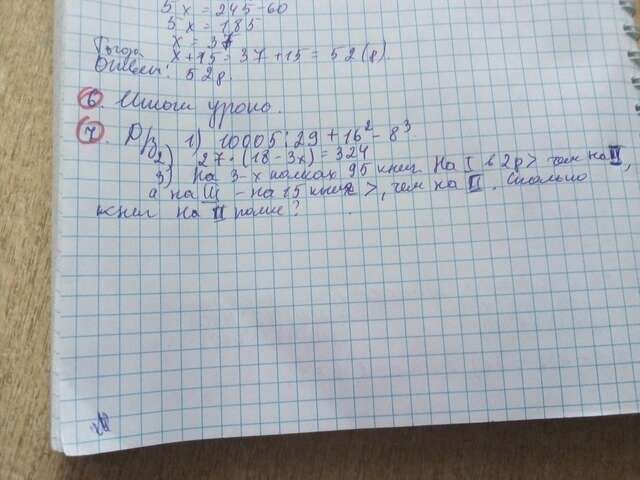 5x = 245 - 60
5x = 185
x = 37
Тогда x + 15 = 37 + 15 = 52 (g).
Ответ: 52g.
6. Итоги урока.
7. D/з 1) 10005 : 29 + 16² - 8³
2) 27 · (18 - 3x) = 324
3) На 3-х полках 95 книг. На I в 2р > чем на II,
а на III - на 15 книг >, чем на II. Сколько
книг на II полке?